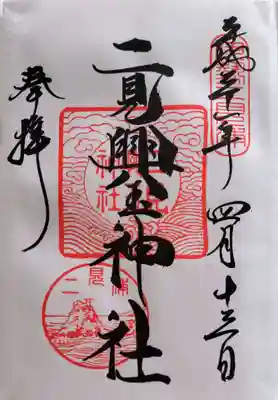 平成三十一年 四月 十三日
二見興玉神社
奉拝
二見浦